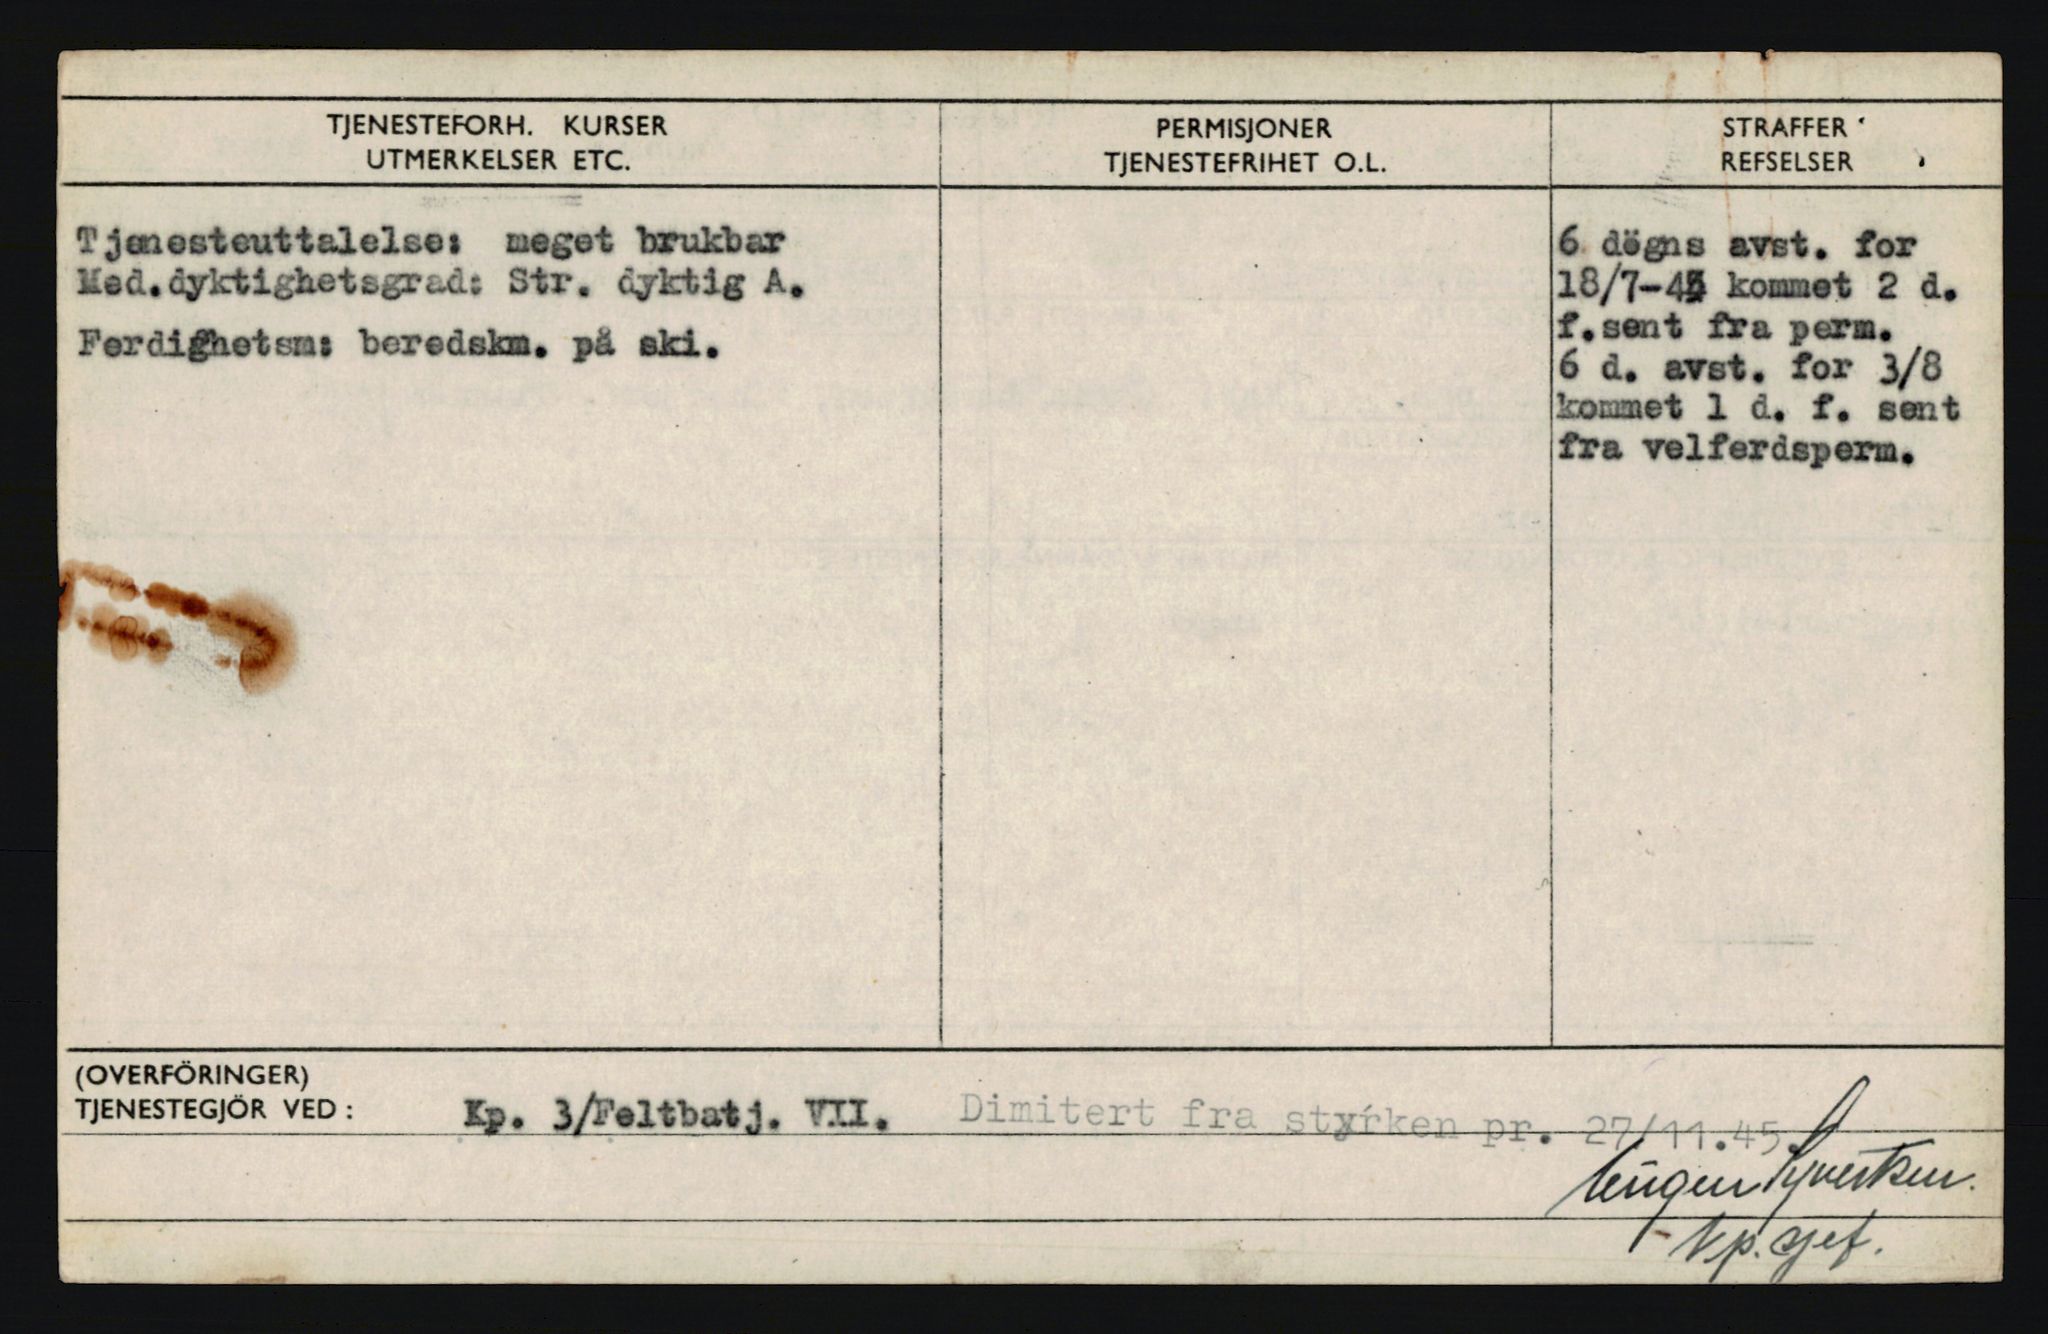 TJENESTEFORH. KURSER
UTMERKELSER ETC.
PERMISJONER
TJENESTEFRIHET O.L.
STRAFFER
REFSELSER
Tjenesteuttalelse: meget brukbar
Med.dyktighetsgrad: Str. dyktig A.
Ferdighetsm: beredskm. på ski.
6 dögns avst. for
18/7-45 kommet 2 d.
f.sent fra perm.
6 d. avst. for 3/8
kommet 1 d. f. sent
fra velferdsperm.
(OVERFÖRINGER)
TJENESTEGJÖR VED: Kp. 3/Feltbatj. VII. Dimitert fra styrken pr. 27/11.45.
Eugen Syvertsen.
kp. sjef.